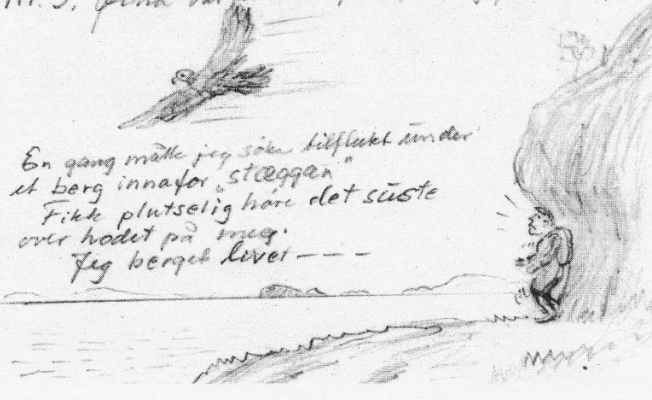 En gang måtte jeg søke tilflukt under
et berg innafor „stæggan"
Fikk plutselig høre det süste
over hodet på meg.
Jeg berget livet - - - -